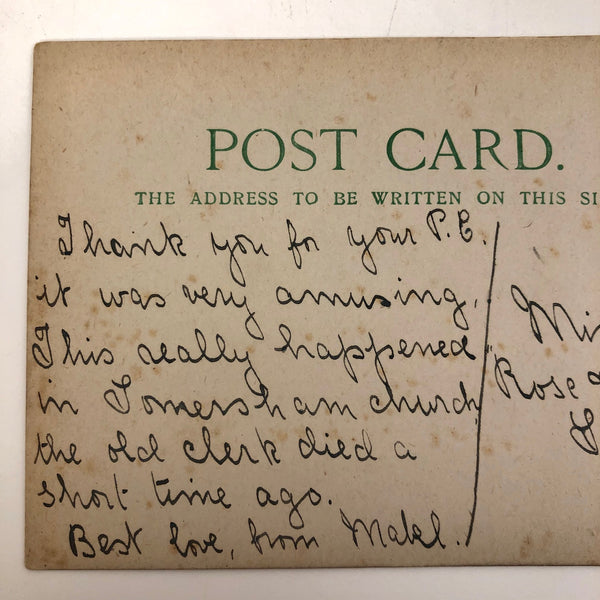 POST CARD.
THE ADDRESS TO BE WRITTEN ON THIS SI
Thank you for your P.C.
it was very amusing.
This really happened
in Somersham church,
the old clerk died a
short time ago.
Best love, from Mabel.
Mi
Rose
S